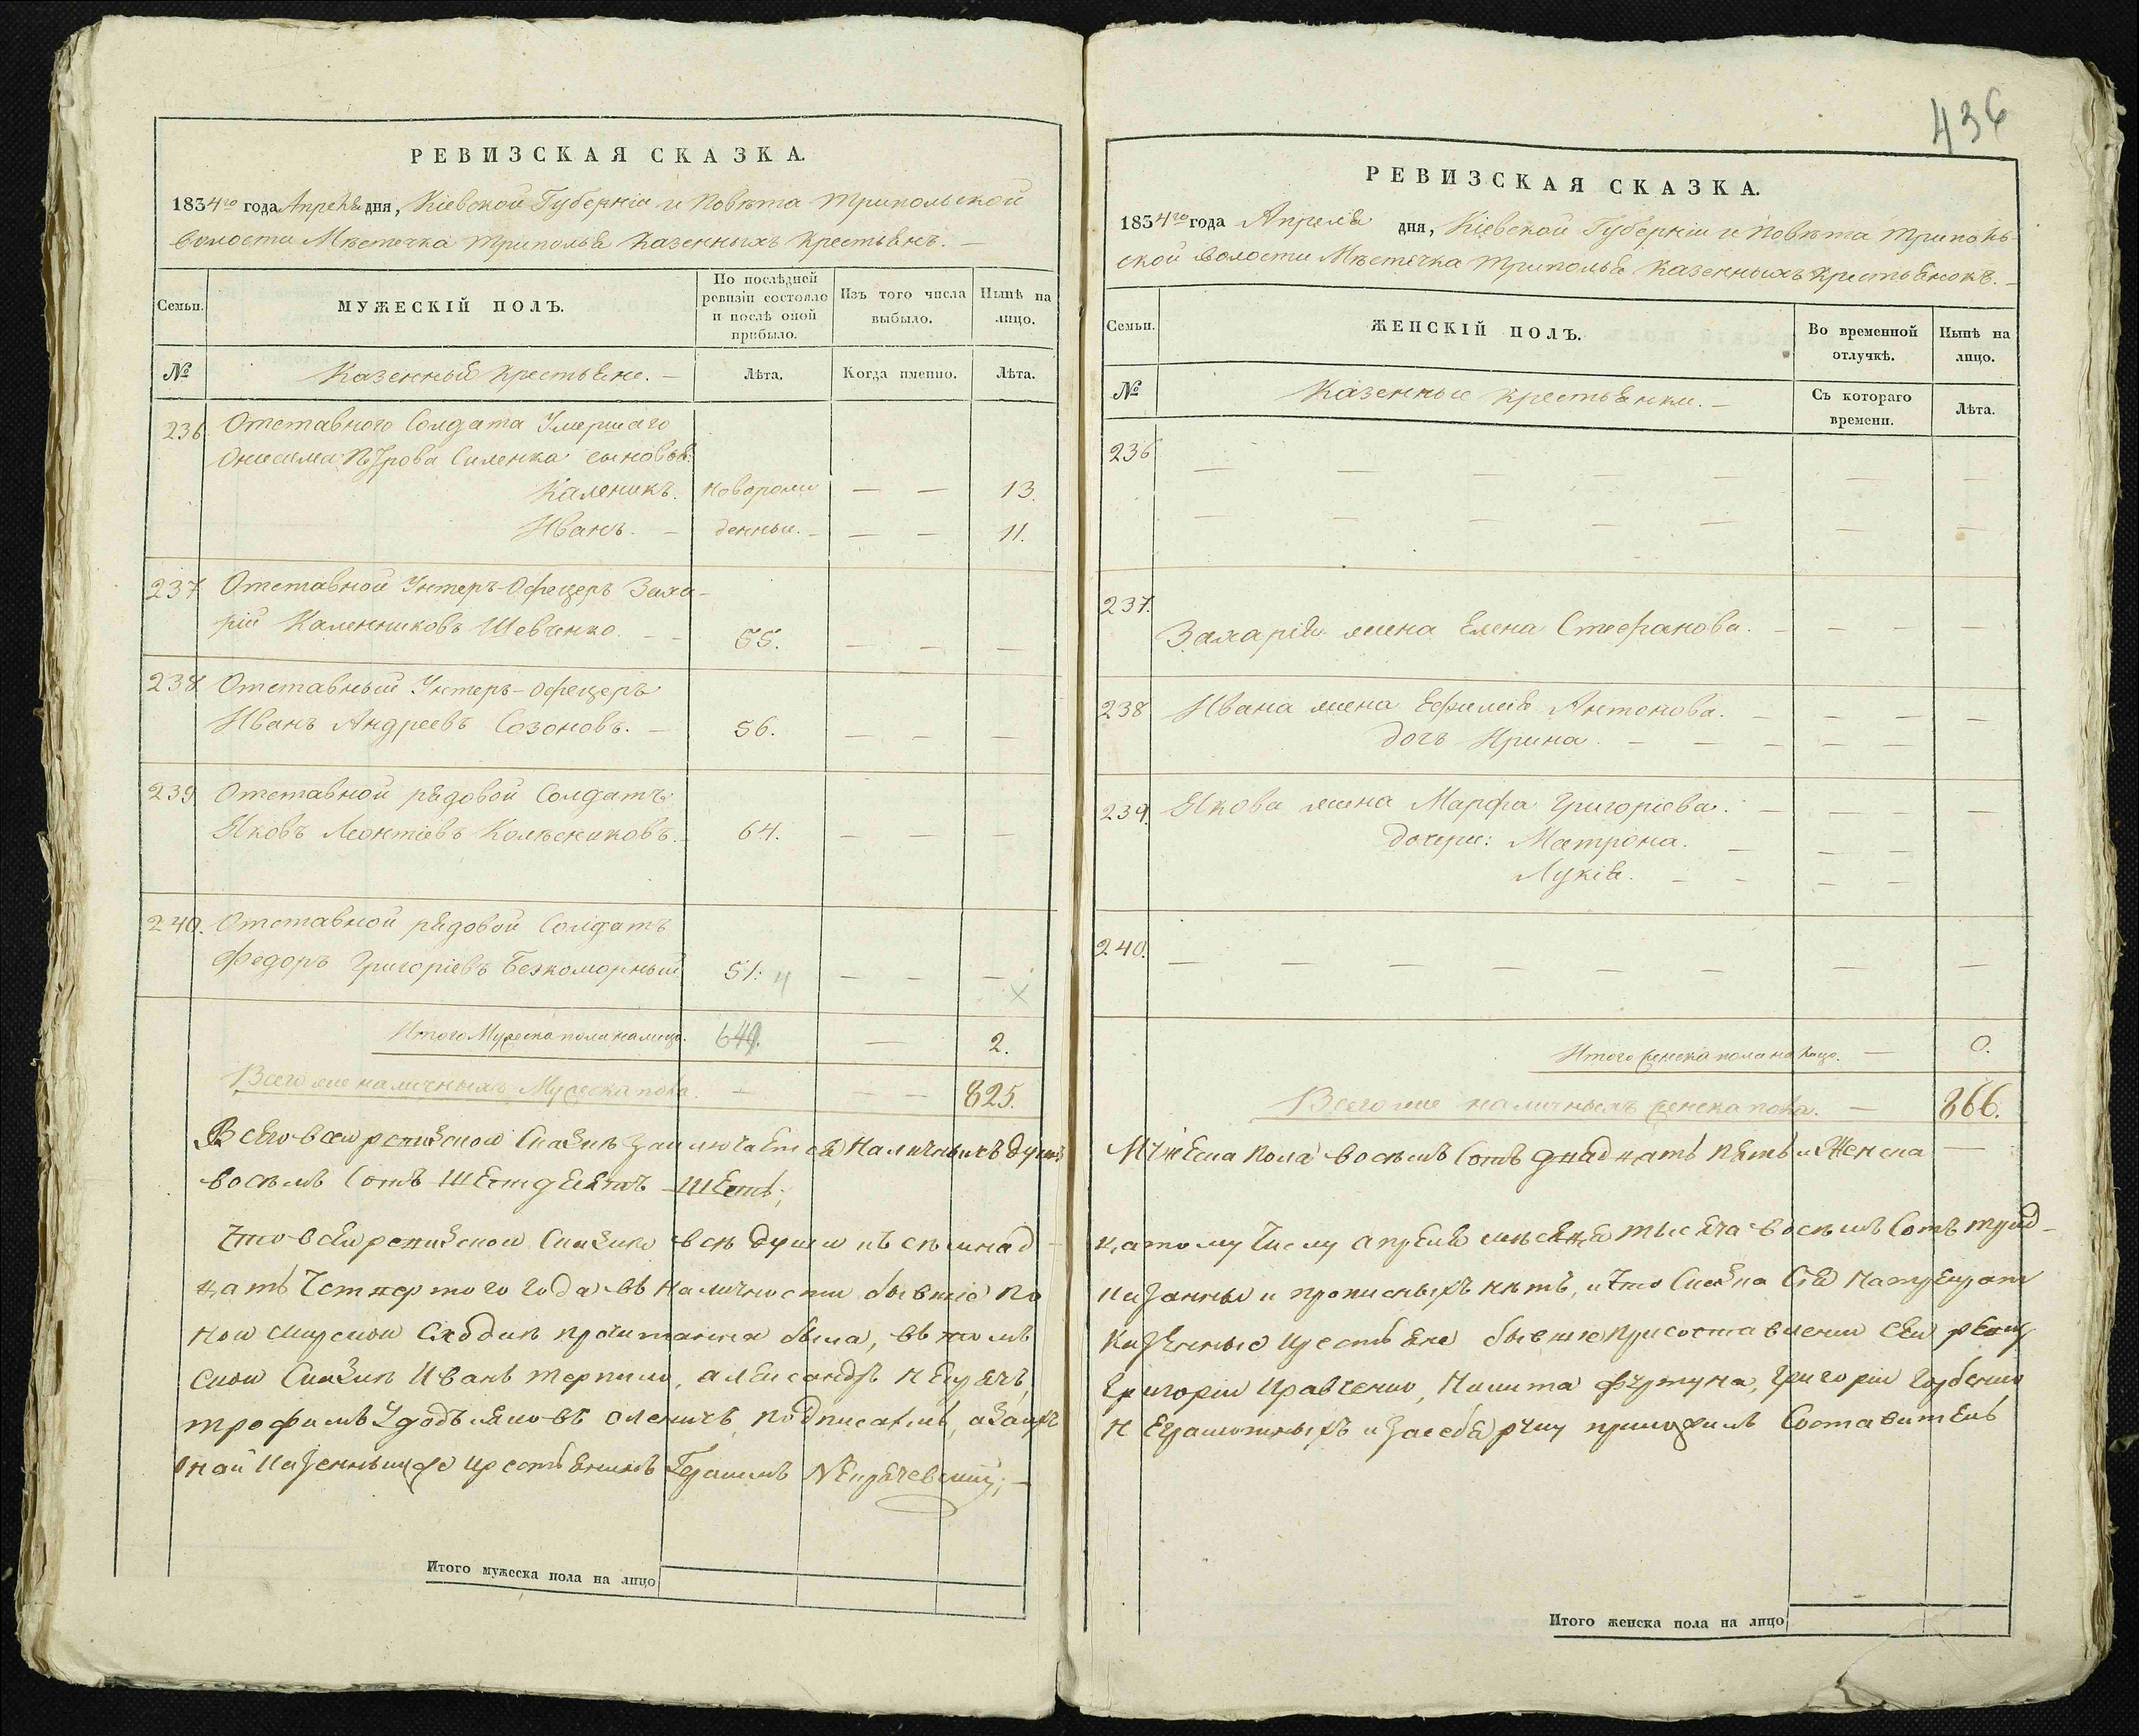 РЕВИЗСКАЯ СКАЗКА.
1834го года Апреля дня, Кіевской Губерніи и Повѣта Трипольской
волости Мѣстечка Триполья Казенныхъ Крестьянъ. —
Семьи.
МУЖЕСКІЙ ПОЛЪ.
По послѣдней ревизіи состояло и послѣ оной прибыло.
Изъ того числа выбыло.
Нынѣ на лицо.
№
Казенный Крестьяне. —
Лѣта.
Когда именно.
Лѣта.
236 Отставного Солдата Умершаго
Онисима Силенка сыновья:
Каленикъ. Новорож — — 13.
Иванъ. — денныи. — — — 11.
237 Отставной Унтеръ-Офецеръ Заха-
рій Каленниковъ Шевченко. — 55. — — —
238 Отставный Унтеръ-Офецеръ
Иванъ Андреевъ Созоновъ. — 56. — — —
239 Отставной рядовой Солдатъ
Яковъ Леонтіевъ Колѣсниковъ. 64. — — —
240. Отставной рядовой Солдатъ
Федоръ Григоріевъ Безкоморный 51: 4 — — —
Итого Мужеска пола налицо. 649. — 2.
Всего же наличныхъ Мужеска пола. — — — 825.
Всего в сей ревизской Сказке заключается Наличныхъ душъ
восемь Сотъ Шестдесятъ Шесть;
Что в сей ревизской Сказки все души къ семнад-
цать Четвертого года въ наличности бывшіе по
ной мирской Сходки прочитанна была, въ
ской Сказки Иванъ Терпило, Александръ
трофимъ подписались, а
Казенныи крестьянинъ Герасимъ
Итого мужеска пола на лицо
436
РЕВИЗСКАЯ СКАЗКА.
1834го года Апреля дня, Кіевской Губерніи и Повѣта Триполь-
ской волости Мѣстечка Триполья Казенныхъ крестьянокъ. —
Семьи.
ЖЕНСКІЙ ПОЛЪ.
Во временной отлучкѣ.
Нынѣ на лицо.
№
Казенные Крестьянки. —
Съ котораго времени.
Лѣта.
236 — — — — — — —
— — — — — — —
237.
Захарія жена Елена Стефанова. — — — —
238 Ивана жена Ефимія Антонова. — — — —
дочь Ирина. — — — — —
239. Якова жена Марфа Григоріева. — — — —
дочери: Матрона. — — —
Лукія. — — — —
240. — — — — — — — —
Итого женска пола на лицо. — 0.
Всего же наличныхъ женска пола. — 866.
Мужеска Пола восемь Сотъ двадцать пять и Женска —
цатому Числу апреля месяца тысяча восемь Сотъ трид-
казанные и прописныхъ нѣтъ, и что Сказка Сія
Казенные крестьяне бывшие при составлении Сей ревиз
Григорій Кравченко, Никита Фуртуна, Григорій Горбенко
Неграмотныхъ и за себя руку приложилъ Составитель
Итого женска пола на лицо